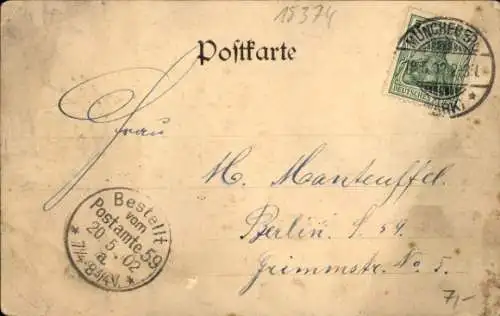 15374
Postkarte
MÜNCHEBERG
(MARK)
DEUTSCHES
Frau
H. Manteuffel
Berlin S. 59
Grimmstr. No 5.
Bestellt
vom
Postamte 59
20.5.02
7¼-8¼V.
7,-